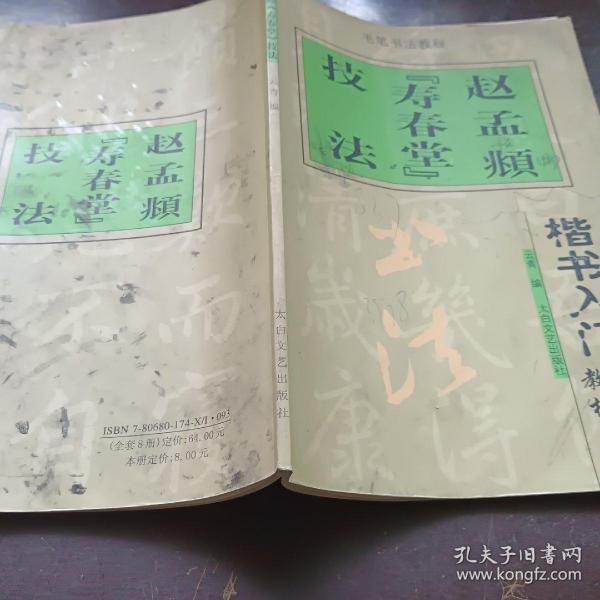 毛笔书法教程
赵孟頫
『寿春堂』
技法
书法
楷书入门
教材
云青 编 太白文艺出版社
寿春堂』技法
云青 编
太白文艺出版社
赵孟頫
『寿春堂』
技法
ISBN 7-80680-174-X/I·093
(全套8册)定价:64.00元
本册定价:8.00元
清歲康
孔夫子旧书网
www.kongfz.com